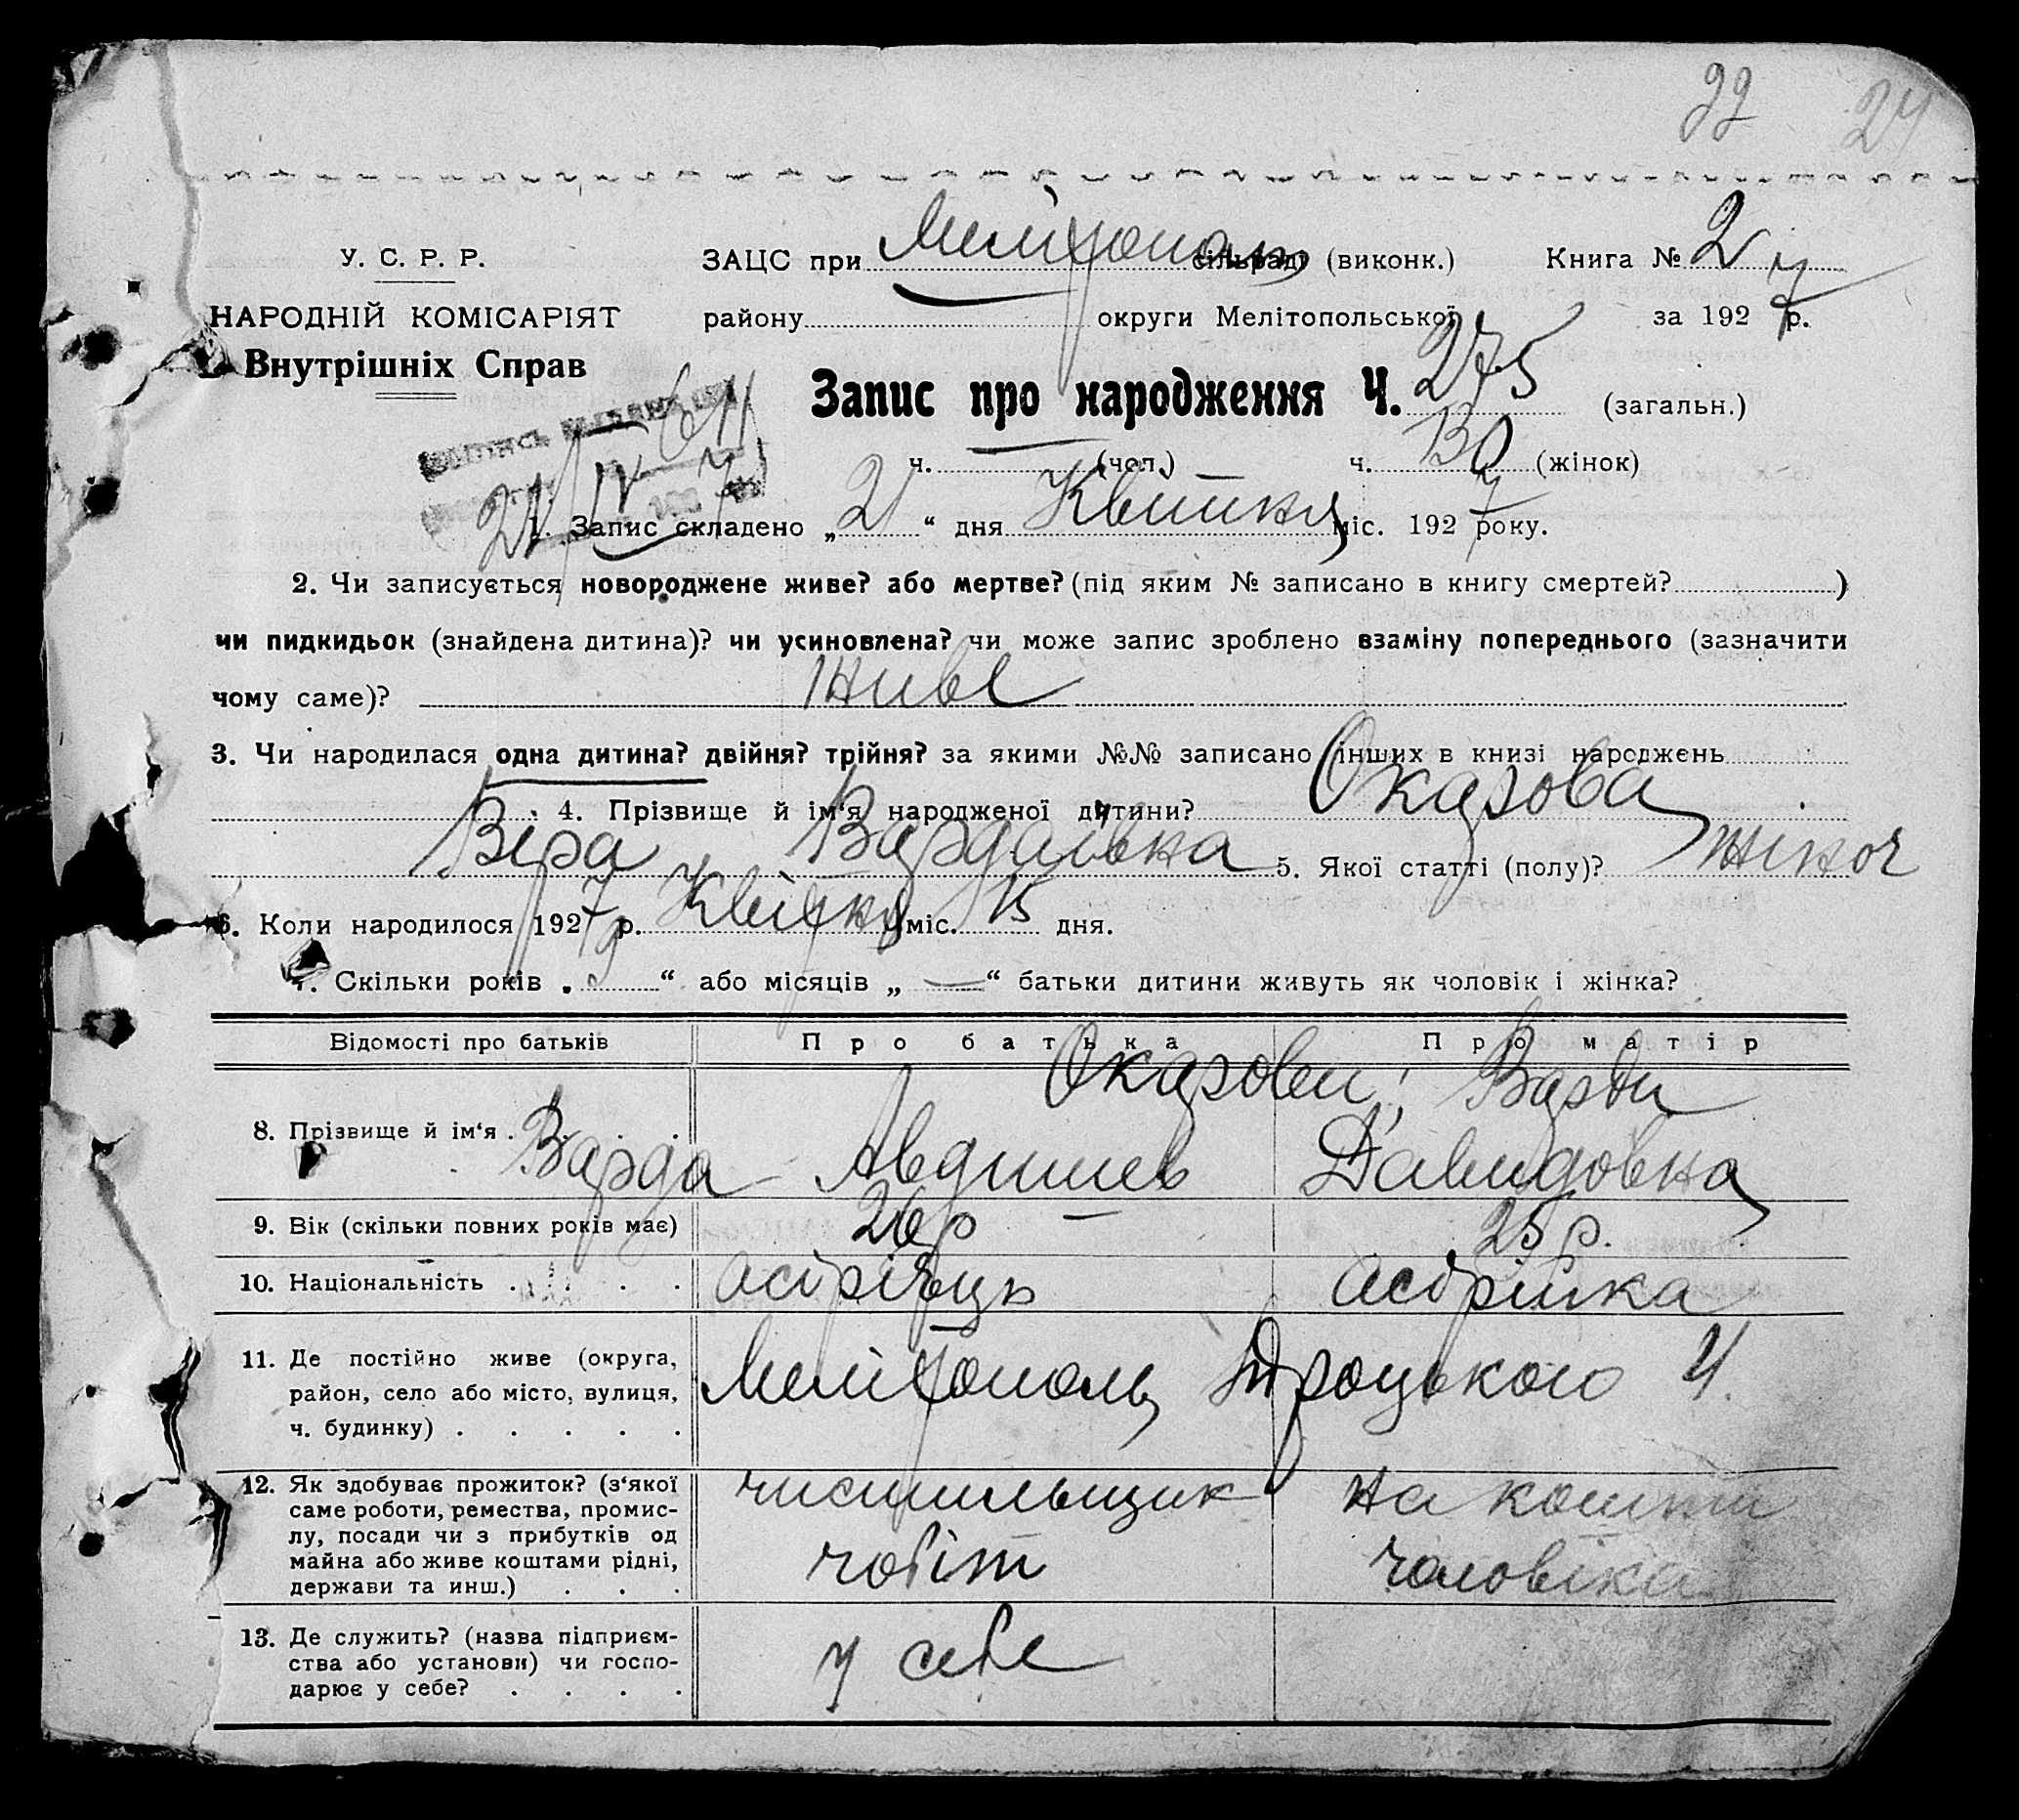 22 24
У. С. Р. Р.
НАРОДНІЙ КОМІСАРІЯТ
Внутрішніх Справ
ЗАЦС при Мелітополь сільраді (виконк.) Книга № 2
району округи Мелітопольської за 1927 р.
Запис про народження Ч. 275 (загальн.)
ч. — (чол.) ч. 130 (жінок)
1. Запис складено „21“ дня Квітня міс. 1927 року.
2. Чи записується новороджене живе? або мертве? (під яким № записано в книгу смертей? )
чи пидкидьок (знайдена дитина)? чи усиновлена? чи може запис зроблено взаміну попереднього (зазначити
чому саме)? живе
3. Чи народилася одна дитина? двійня? трійня? за якими №№ записано інших в книзі народжень
4. Прізвище й ім‘я народженої дитини? Оказова
Віра Вардаівна 5. Якої статті (полу)? жіноч
6. Коли народилося 1927 р. Квітня міс. 15 дня.
7. Скільки років „9“ або місяців „—“ батьки дитини живуть як чоловік і жінка?
Відомості про батьків Про батька Про матір
8. Прізвище й ім‘я . Оказови; Варди
Варда Авдишев Давидовна
9. Вік (скільки повних років має) 26 р — 25 р.
10. Національність . . . . асірієць асірійка
11. Де постійно живе (округа,
район, село або місто, вулиця,
ч. будинку) . . . . .
Мелітополь Троцького 4.
12. Як здобуває прожиток? (з‘якої
саме роботи, ремества, промис-
лу, посади чи з прибутків од
майна або живе коштами рідні,
держави та инш.) . . .
чистильщик
чобіт
на кошти
чоловіка
13. Де служить? (назва підприєм-
ства або установи) чи госпо-
дарює у себе? . . . .
у себе